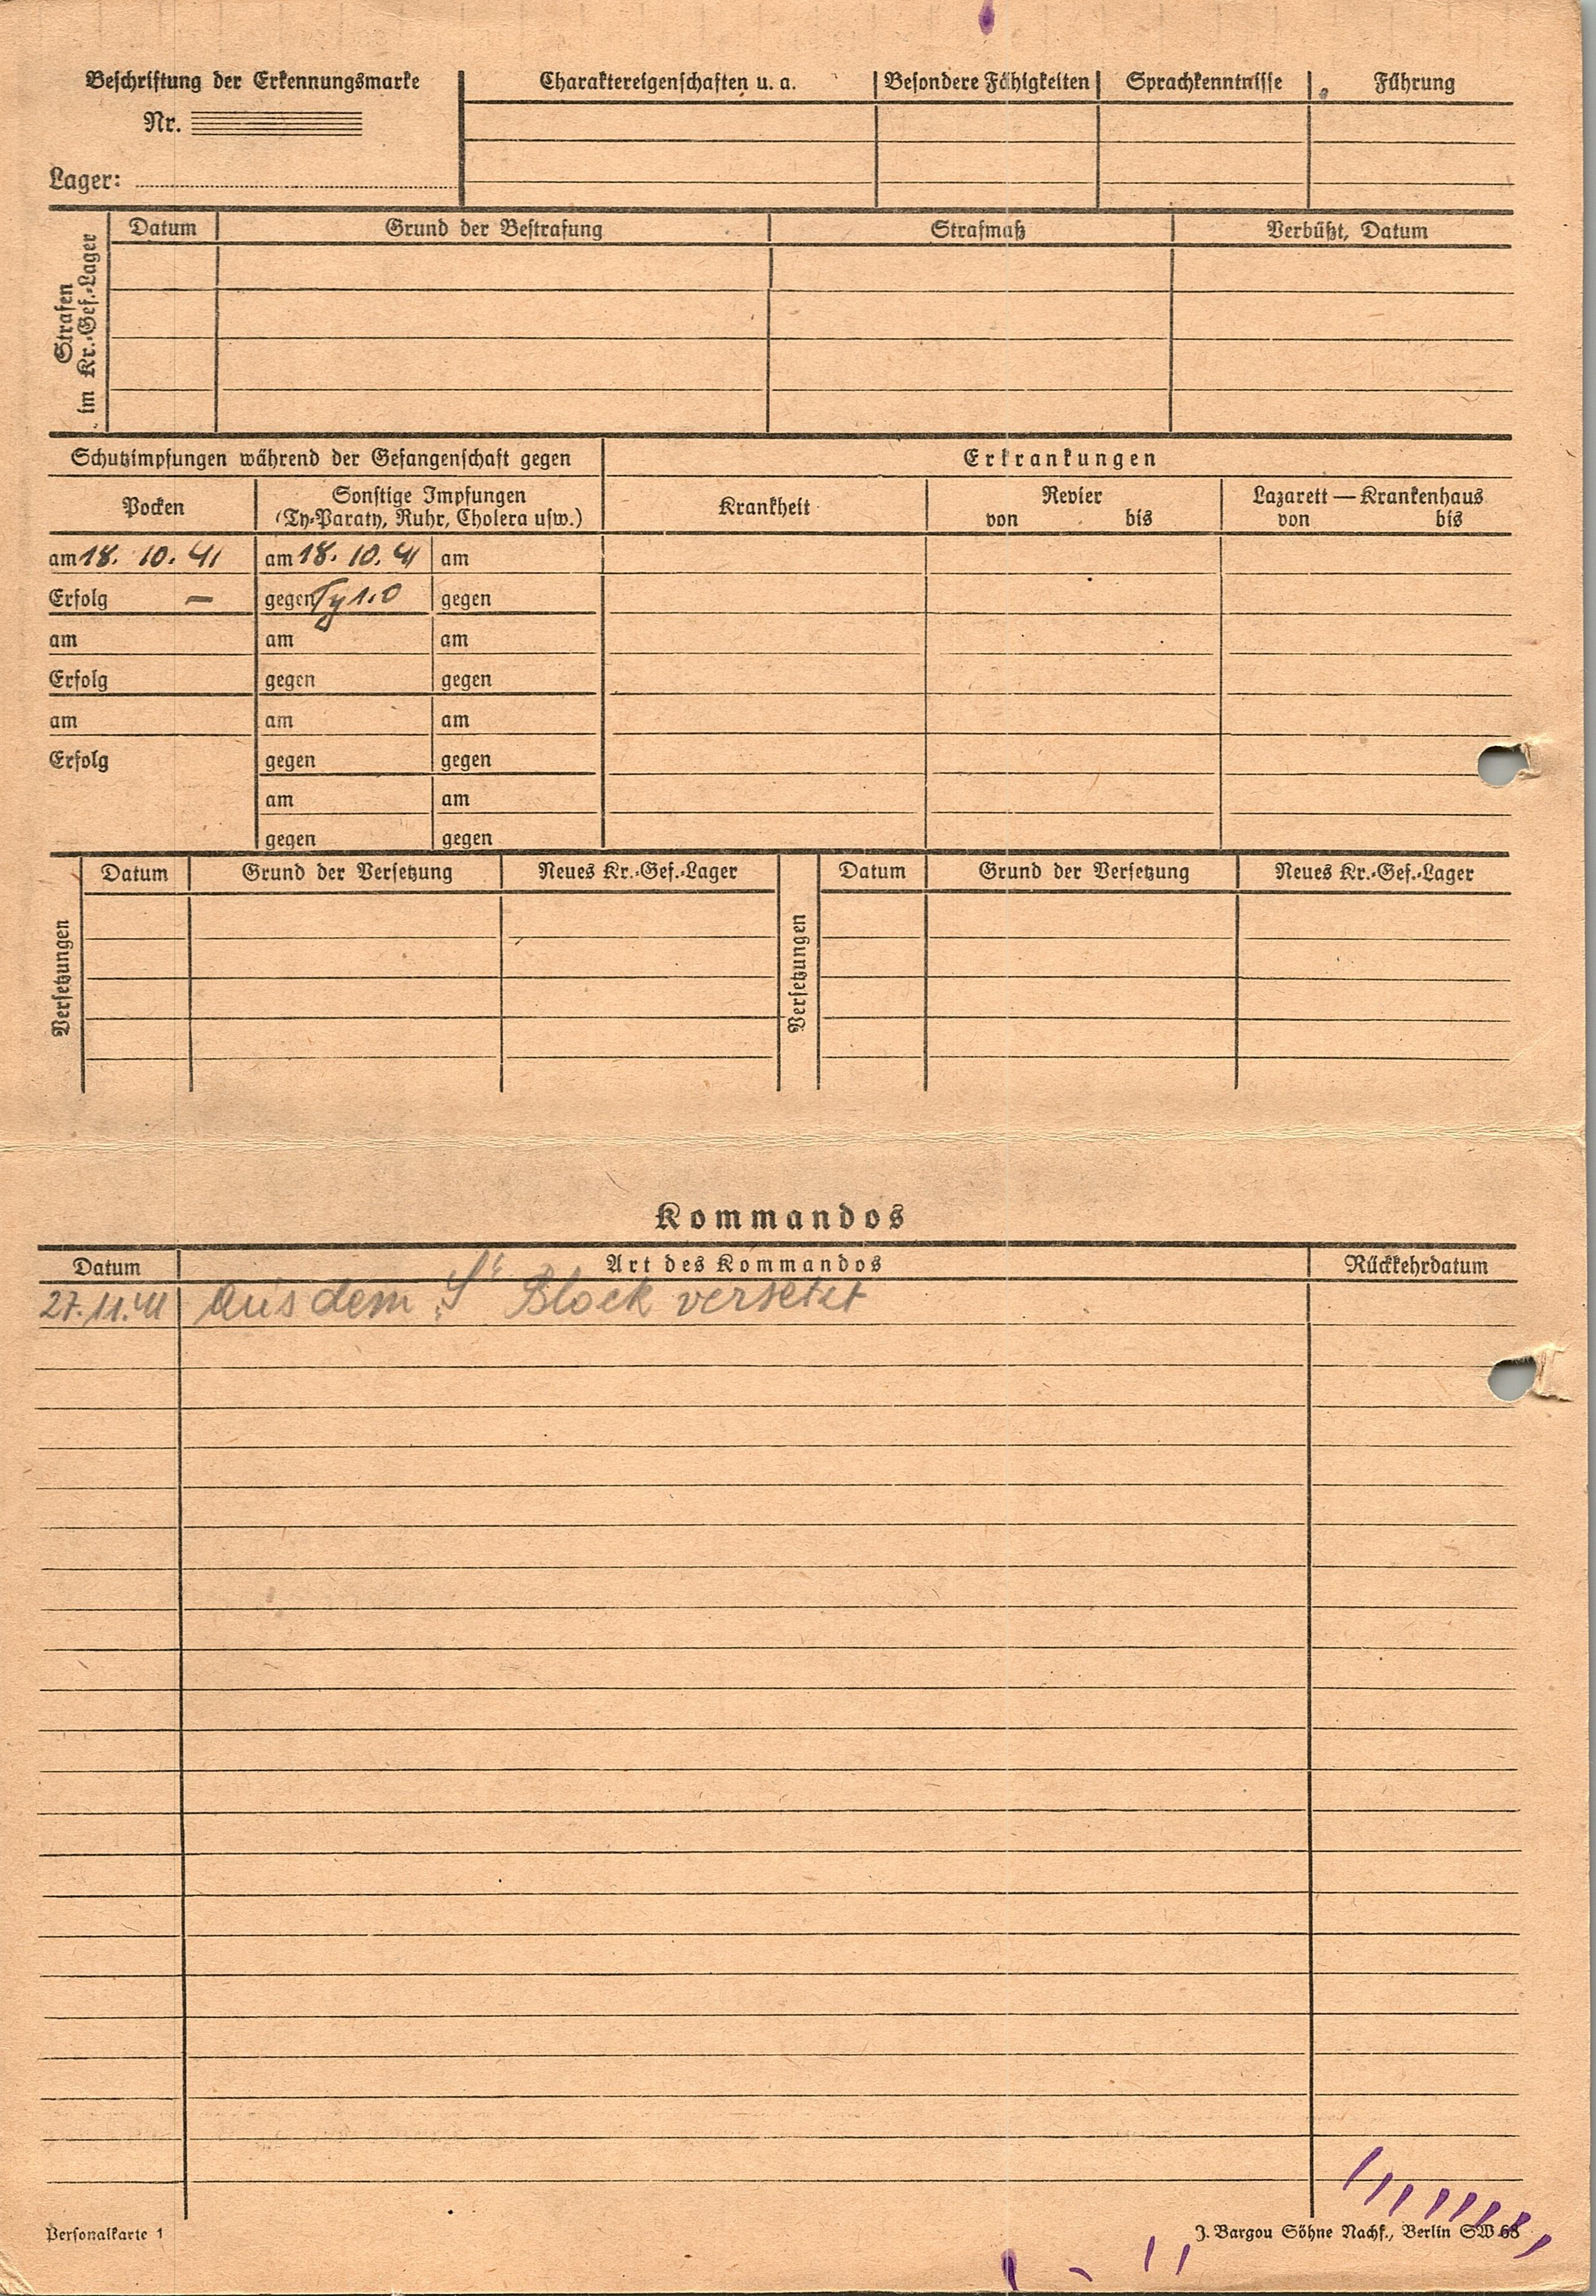 Beschriftung der Erkennungsmarke
Charaktereigenschaften u. a.
Besondere Fähigkeiten
Sprachkenntnisse
Führung
Nr.
Lager:
Strafen
im Kr.-Gef.-Lager
Datum
Grund der Bestrafung
Strafmaß
Verbüßt, Datum
Schutzimpfungen während der Gefangenschaft gegen
Erkrankungen
Pocken
Sonstige Impfungen
(Ty-Paraty, Ruhr, Cholera usw.)
Krankheit
Revier
von bis
Lazarett — Krankenhaus
von bis
am 18. 10. 41 am 18. 10. 41 am
Erfolg — gegen Ty 1.0 gegen
am am am
Erfolg gegen gegen
am am am
Erfolg gegen gegen
am am
gegen gegen
Versetzungen
Datum
Grund der Versetzung
Neues Kr.-Gef.-Lager
Versetzungen
Datum
Grund der Versetzung
Neues Kr.-Gef.-Lager
Kommandos
Datum
Art des Kommandos
Rückkehrdatum
27.11.41 aus dem „S“ Block versetzt
Personalkarte 1
J. Bargou Söhne Nachf., Berlin SW 68